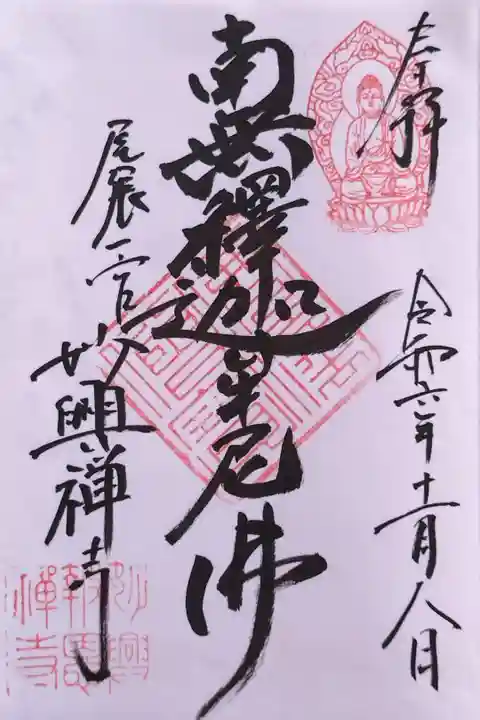 奉拝
令和六年十一月八日
南無釋迦牟尼佛
尾張一宮
妙興禅寺
妙興
報恩
禪寺